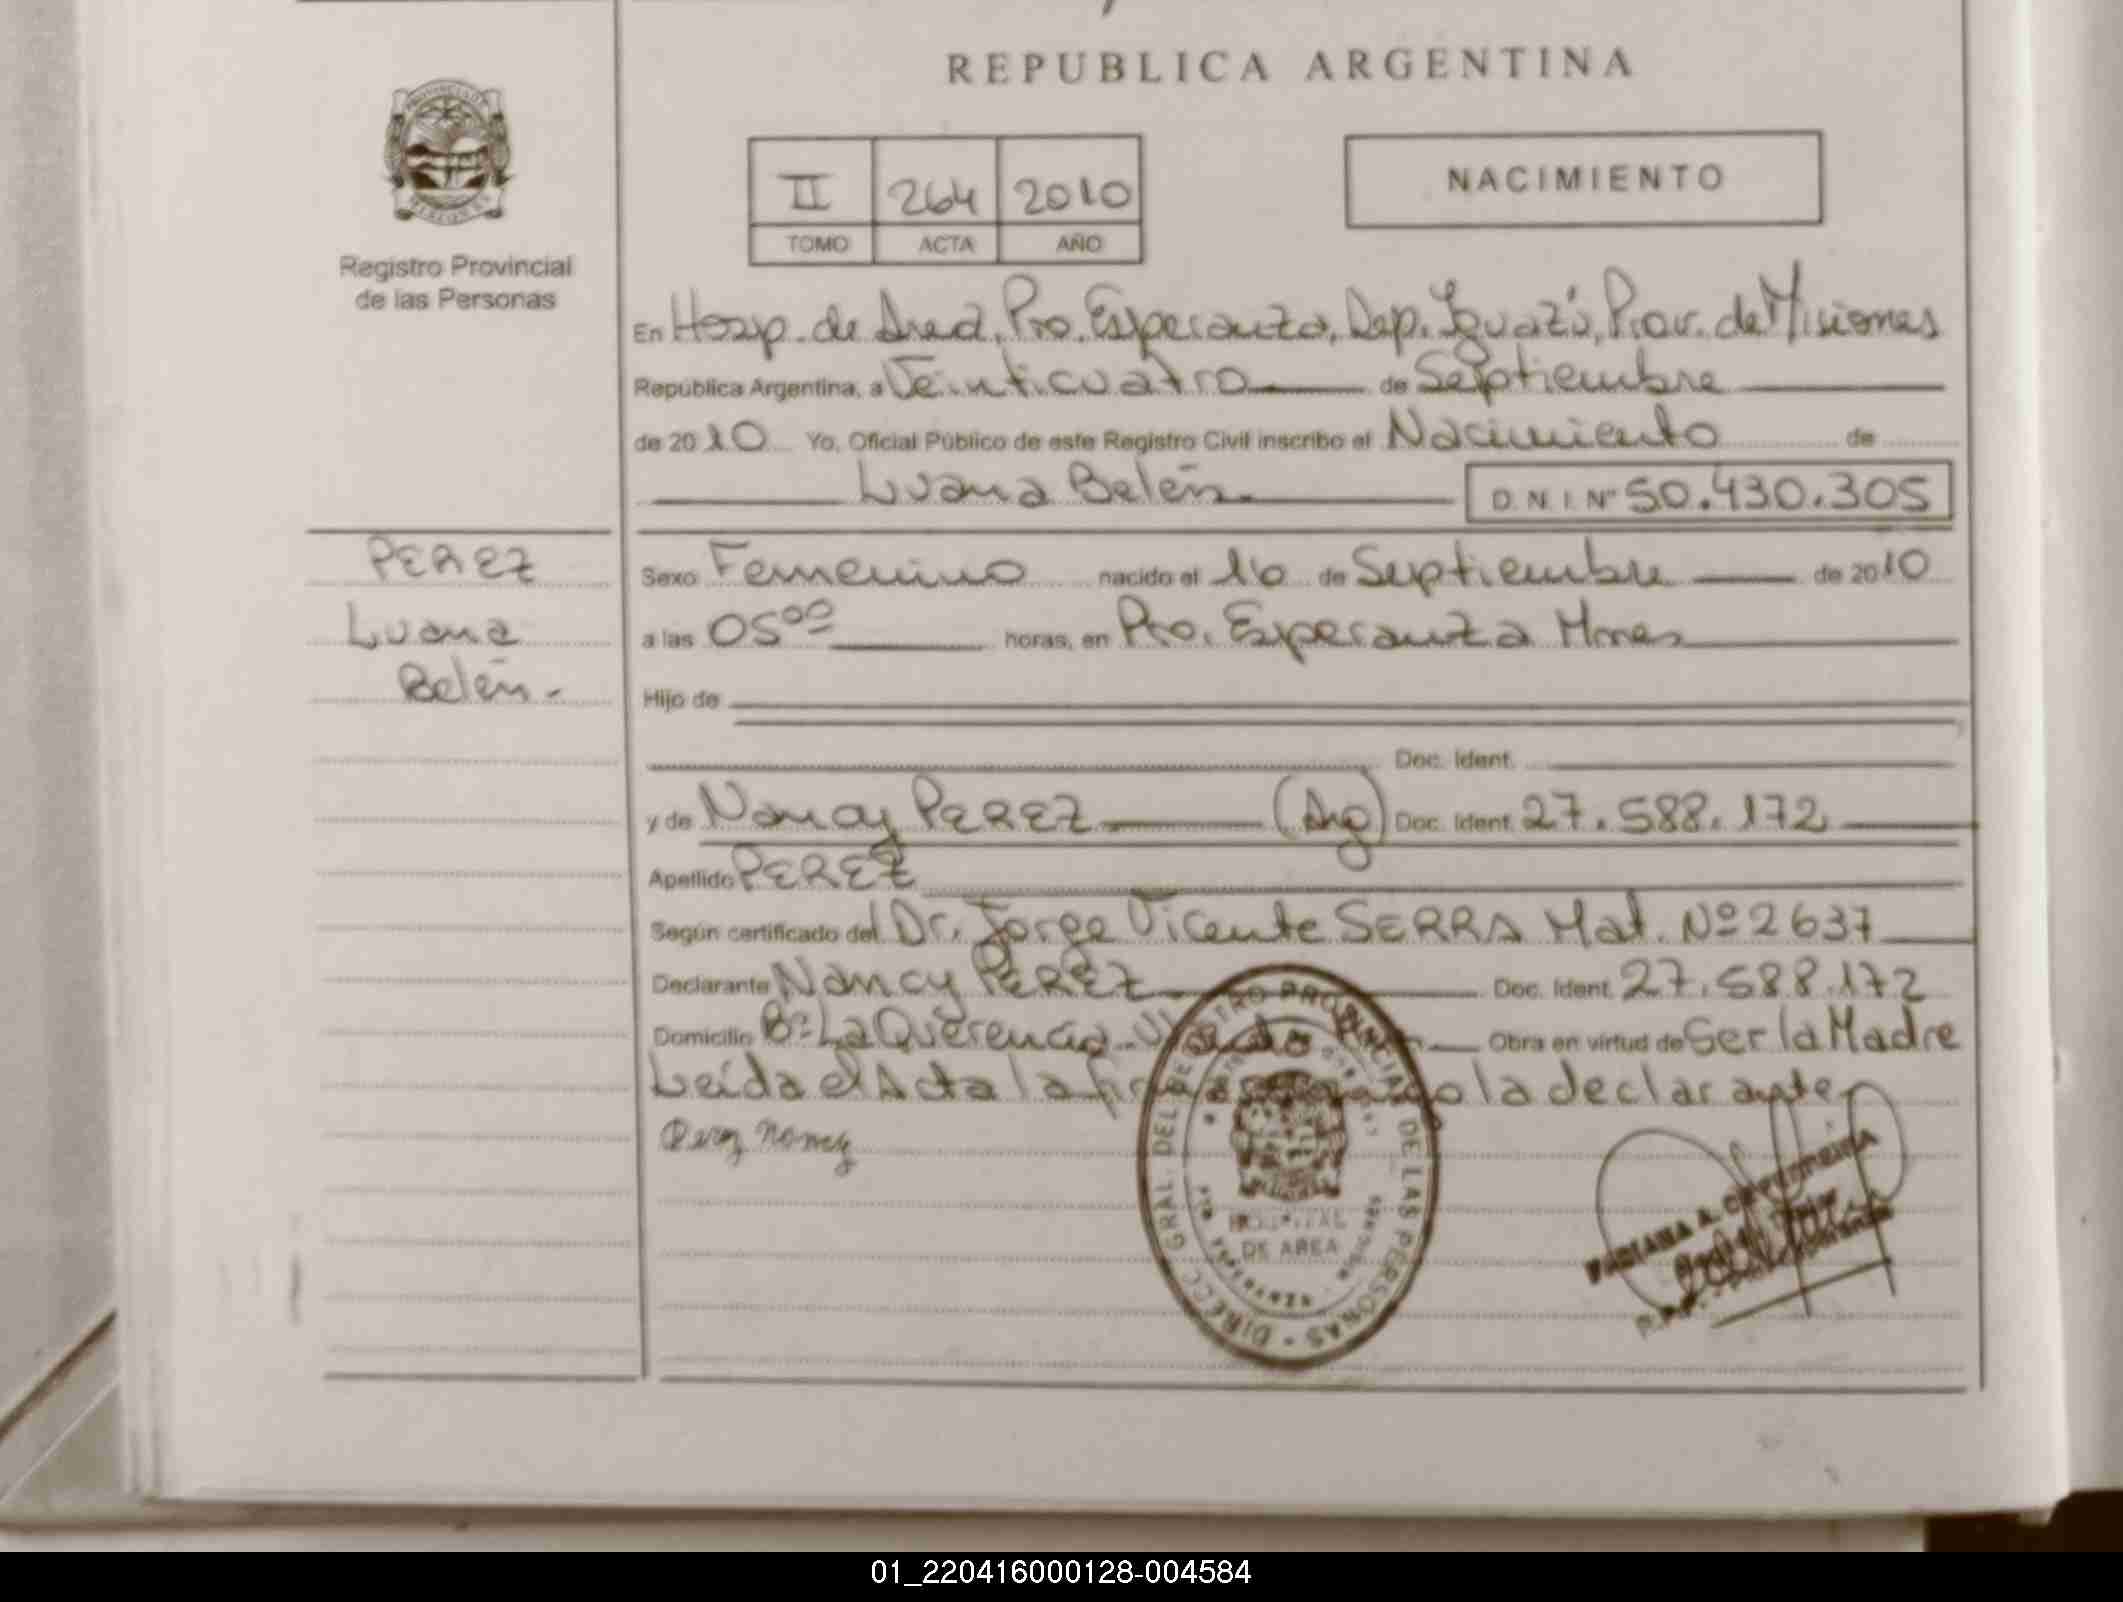 REPUBLICA ARGENTINA
PROVINCIA DE MISIONES
Registro Provincial
de las Personas
II 264 2010
TOMO ACTA AÑO
NACIMIENTO
En Hosp. de Area, Pto. Esperanza, Dep. Iguazú, Prov. de Misiones
República Argentina, a Veinticuatro de Septiembre
de 2010 Yo, Oficial Público de este Registro Civil inscribo el Nacimiento de
Luana Belén. D.N.I. Nº 50.430.305
PEREZ
Luana
Belén.-
Sexo Femenino nacido el 16 de Septiembre de 2010
a las 05⁰⁰ horas, en Pto. Esperanza Mnes
Hijo de
Doc. Ident.
y de Nancy PEREZ (Arg) Doc. Ident. 27.588.172
Apellido PEREZ
Según certificado del Dr. Jorge Vicente SERRA Mat. Nº 2637
Declarante Nancy PEREZ Doc. Ident. 27.588.172
Domicilio Bº La Querencia Obra en virtud de Ser la Madre
Leída el Acta la la declarante
Perez Nancy
DIRECC. GRAL. DEL REGISTRO PROVINCIAL DE LAS PERSONAS
HOSPITAL
DE AREA
FABIANA A.
01_220416000128-004584